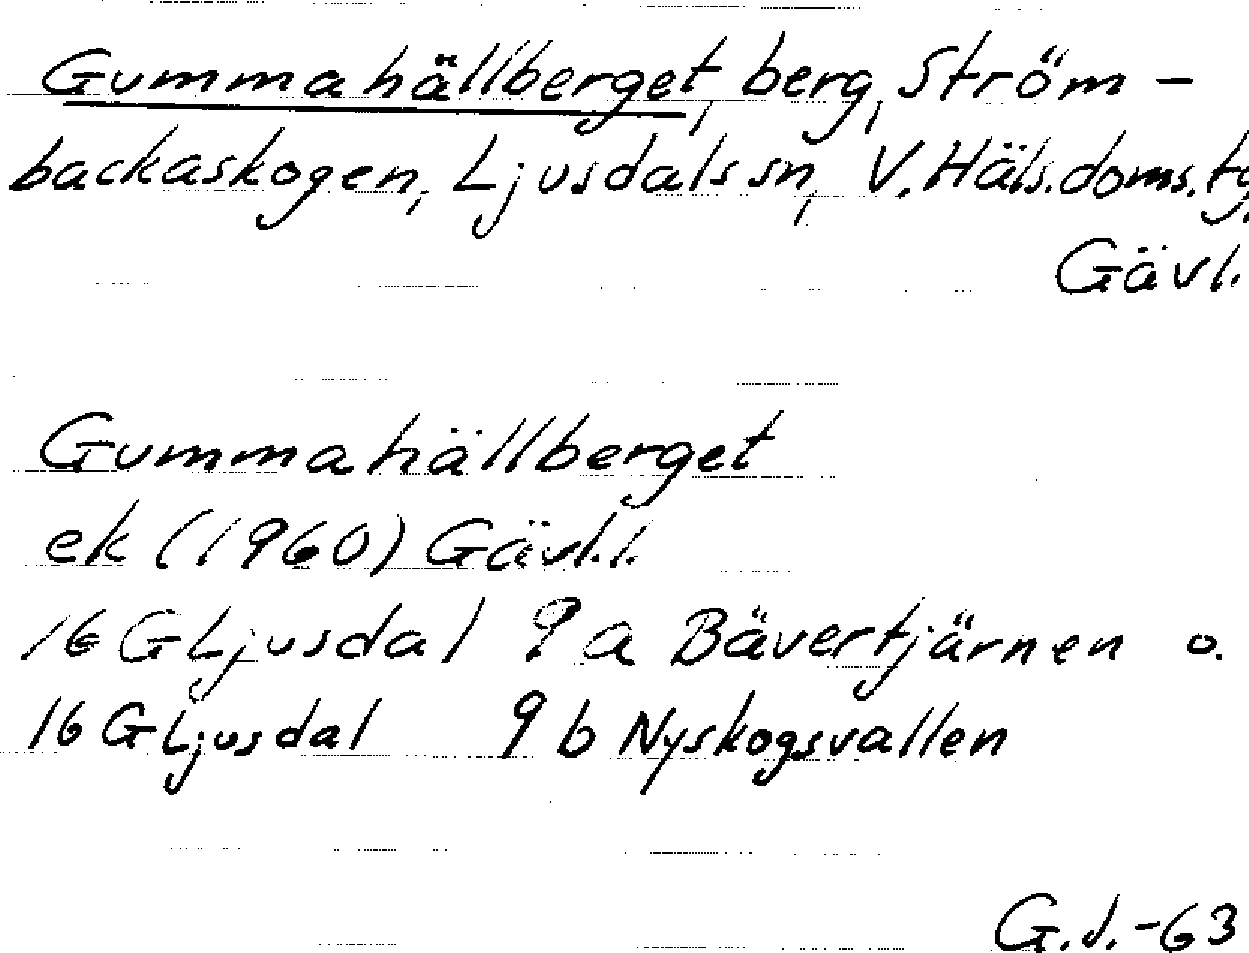 Gummahällberget, berg, Ström-
backaskogen, Ljusdals sn, V. Häls. doms. tg,
Gävl.
Gummahällberget
ek (1960) Gävl.l.
16 G Ljusdal 9 a Bävertjärnen o.
16 G Ljusdal 9 b Nyskogsvallen
G.J.-63